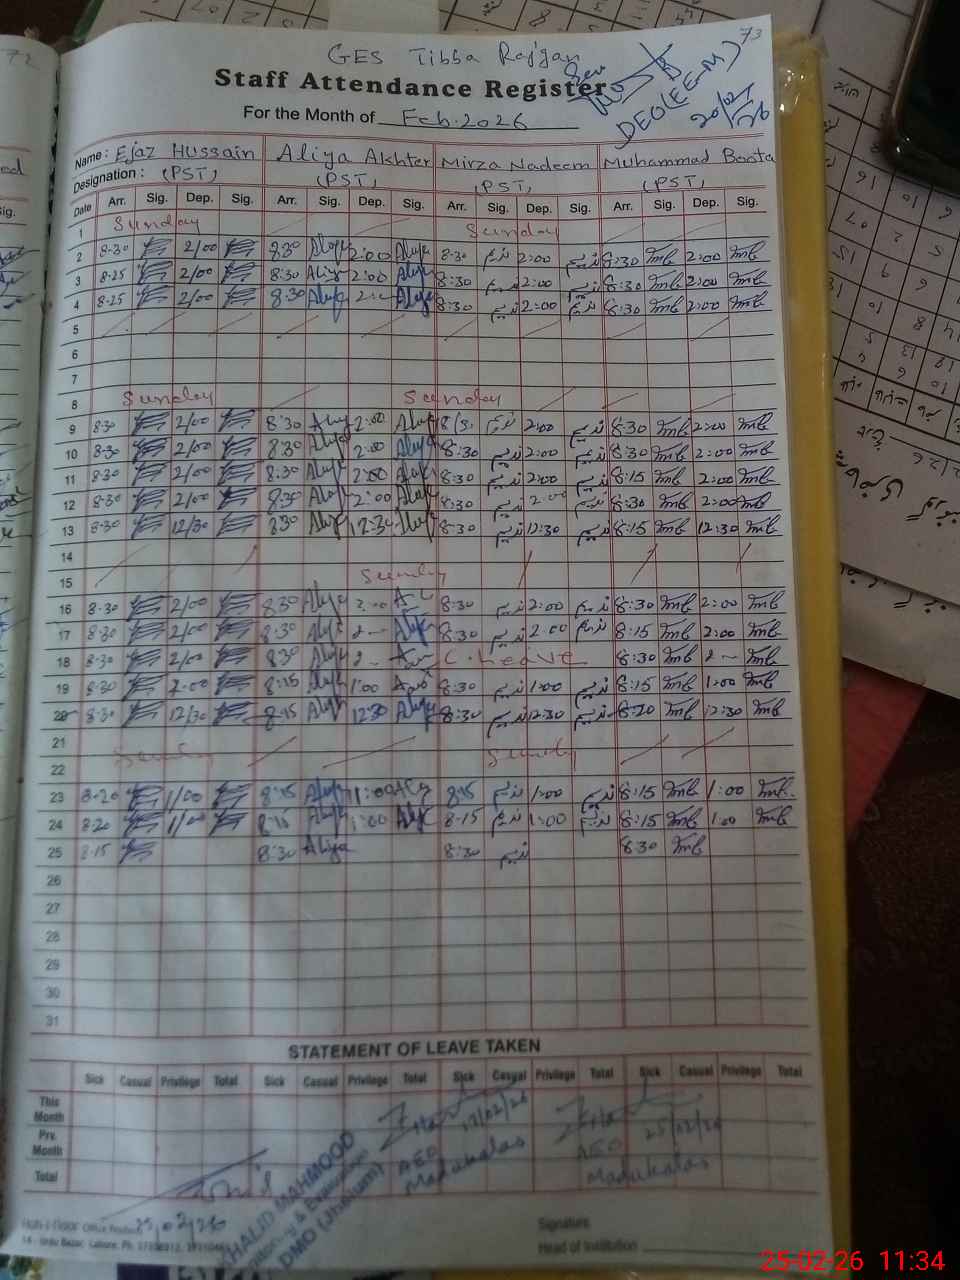 73
GES Tibba Rajgan
Staff Attendance Register
DEO(EE-M)
20/02/26
For the Month of Feb. 2026
Name : Ejaz Hussain Aliya Akhter Mirza Nadeem Muhammad Boota
Designation : (PST) (PST) (PST) (PST)
Date Arr. Sig. Dep. Sig. Arr. Sig. Dep. Sig. Arr. Sig. Dep. Sig. Arr. Sig. Dep. Sig.
1 Sunday Sunday
2 8-30 2/00 8:30 Aliya 2:00 Aliya 8:30 ندیم 2:00 ندیم 8:30 Tmb 2:00 Tmb
3 8-25 2/00 8:30 Aliya 2:00 Aliya 8:30 ندیم 2:00 ندیم 8:30 Tmb 2:00 Tmb
4 8-25 2/00 8:30 Aliya 2:- Aliya 8:30 ندیم 2:00 ندیم 8:30 Tmb 2:00 Tmb
5
6
7
8 Sunday Sunday
9 8-30 2/00 8:30 Aliya 2:00 Aliya ندیم 2:00 ندیم 8:30 Tmb 2:00 Tmb
10 8-30 2/00 8:30 Aliya 2:00 Aliya 8:30 ندیم 2:00 ندیم 8:30 Tmb 2:00 Tmb
11 8-30 2/00 8:30 Aliya 2:00 Aliya 8:30 ندیم 2:00 ندیم 8:15 Tmb 2:00 Tmb
12 8-30 2/00 8:30 Aliya 2:00 Aliya 8:30 ندیم 2:00 ندیم 8:30 Tmb 2:00 Tmb
13 8-30 12/30 8:30 Aliya 12:30 Aliya 8:30 ندیم 12:30 ندیم 8:15 Tmb 12:30 Tmb
14
15 Sunday
16 8-30 2/00 8:30 Aliya 2:00 8:30 ندیم 2:00 ندیم 8:30 Tmb 2:00 Tmb
17 8-30 2/00 8:30 Aliya 2- Aliya 8:30 ندیم 2:00 ندیم 8:15 Tmb 2:00 Tmb
18 8-30 2/00 8:30 Aliya 2- C. Leave 8:30 Tmb 2- Tmb
19 8-30 2-00 8:15 Aliya 1:00 8:30 ندیم 1:00 ندیم 8:15 Tmb 1:00 Tmb
20 8-30 12/30 8:15 Aliya 12:30 Aliya 8:30 ندیم 12:30 ندیم 8:20 Tmb 12:30 Tmb
21
22 Sunday Sunday
23 8-20 1/00 8:15 Aliya 1:00 8:15 ندیم 1:00 ندیم 8:15 Tmb 1:00 Tmb
24 8-20 1/00 8:15 Aliya 1:00 Aliya 8-15 ندیم 1:00 ندیم 8:15 Tmb 1:00 Tmb
25 8-15 8:30 Aliya 8:30 ندیم 8:30 Tmb
26
27
28
29
30
31
STATEMENT OF LEAVE TAKEN
Sick Casual Privilege Total Sick Casual Privilege Total Sick Casual Privilege Total Sick Casual Privilege Total
This Month
Prv. Month
Total
17/02/26
AEO
Madukalas
25/02/26
AEO
Madukalas
KHALID MAHMOOD
DMO (Jhelum)
Signature
Head of Institution
25-02-26 11:34